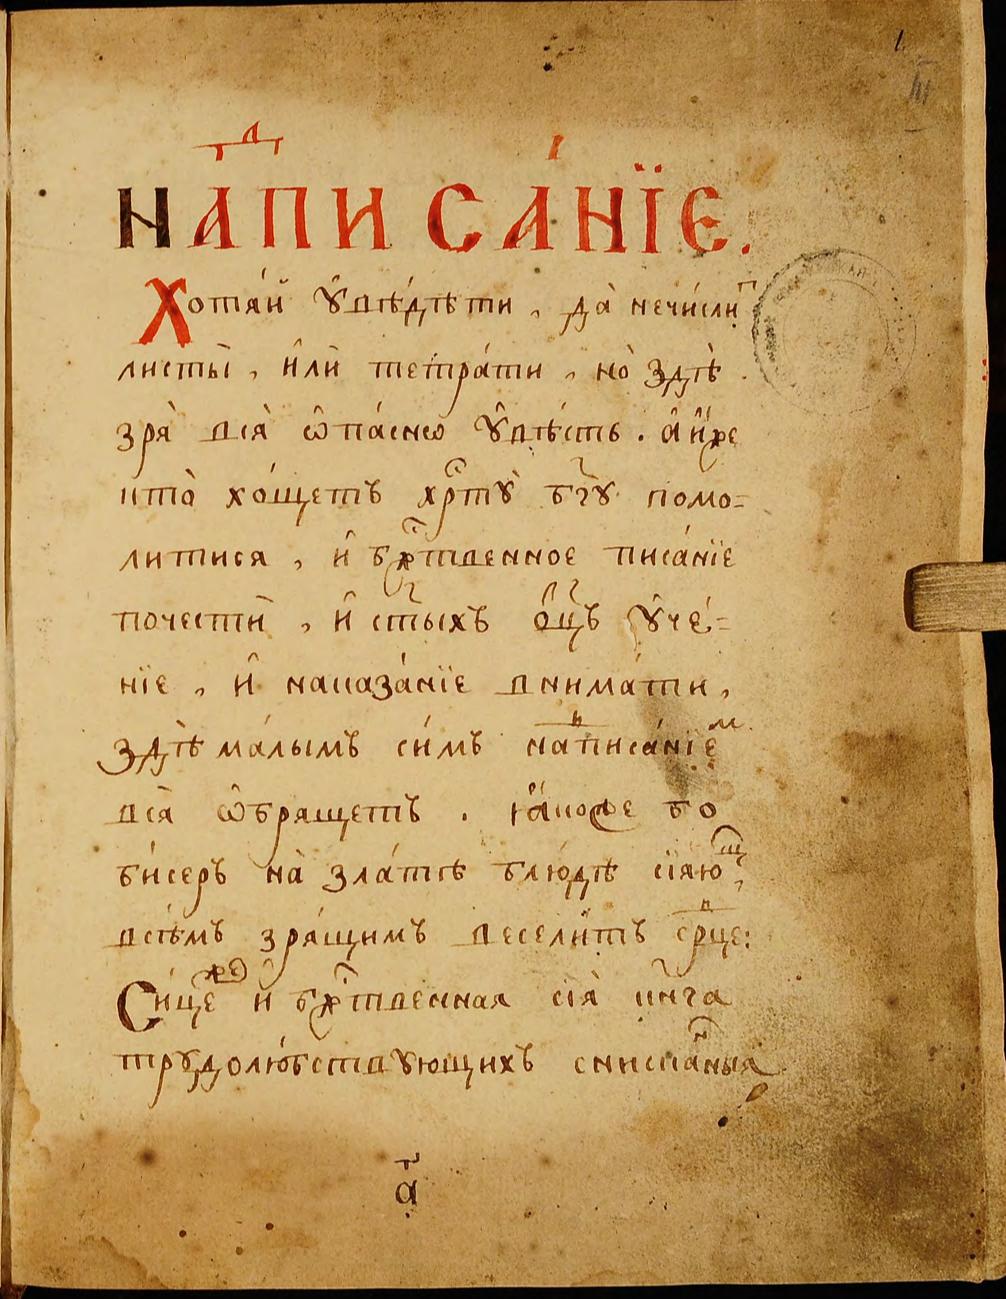 На́дписа́нїе.
Хотѧ́й ᲂу҆вѣ́дѣти, да̀ нечи́сли
листы̀, и҆лѝ тетра́ти, но̀ здѣ̀
зрѧ̀ всѧ̀ ѡ҆па́снѡ ᲂу҆вѣ́сть. а҆и҆́же
кто̀ хо́щетъ хрⷭ҇тꙋ̀ бг҃ꙋ помо=
литисѧ, и҆ бжⷭ҇твенное писа́нїе
почестѝ, и҆ ст҃ыхъ ѻ҆ц҃ъ ᲂу҆че́=
нїе, и҆ наказа́нїе внима́ти,
здѣ̀ ма́лымъ си́мъ наⷣписа́нїеⷨ
всѧ̀ ѡ҆брѧщетъ. ꙗ҆́коже бо
би́серъ на̀ зла́тѣ блю́дѣ сїѧющ,
всѣ́мъ зрѧ́щимъ весели́тъ срⷣце:
Си́цеже и҆ бжⷭ҇твеннаѧ сїѧ̀ кни́га
трудолю́бствꙋющихъ снискаⷩ҇ныѧ
а҃
1